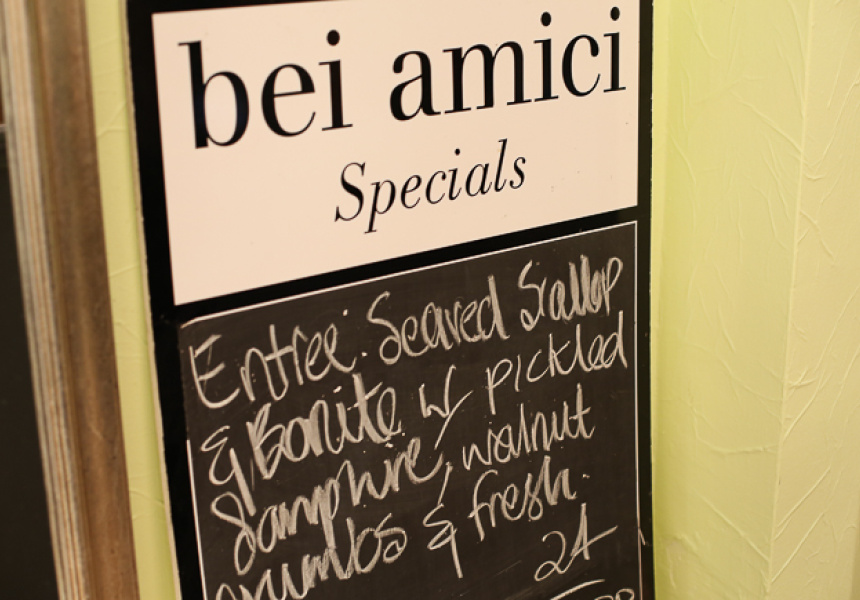 bei amici
Specials
Entree: Seared Scallop
& Bonito w/ pickled
Samphire, walnut
crumbs & fresh.
24